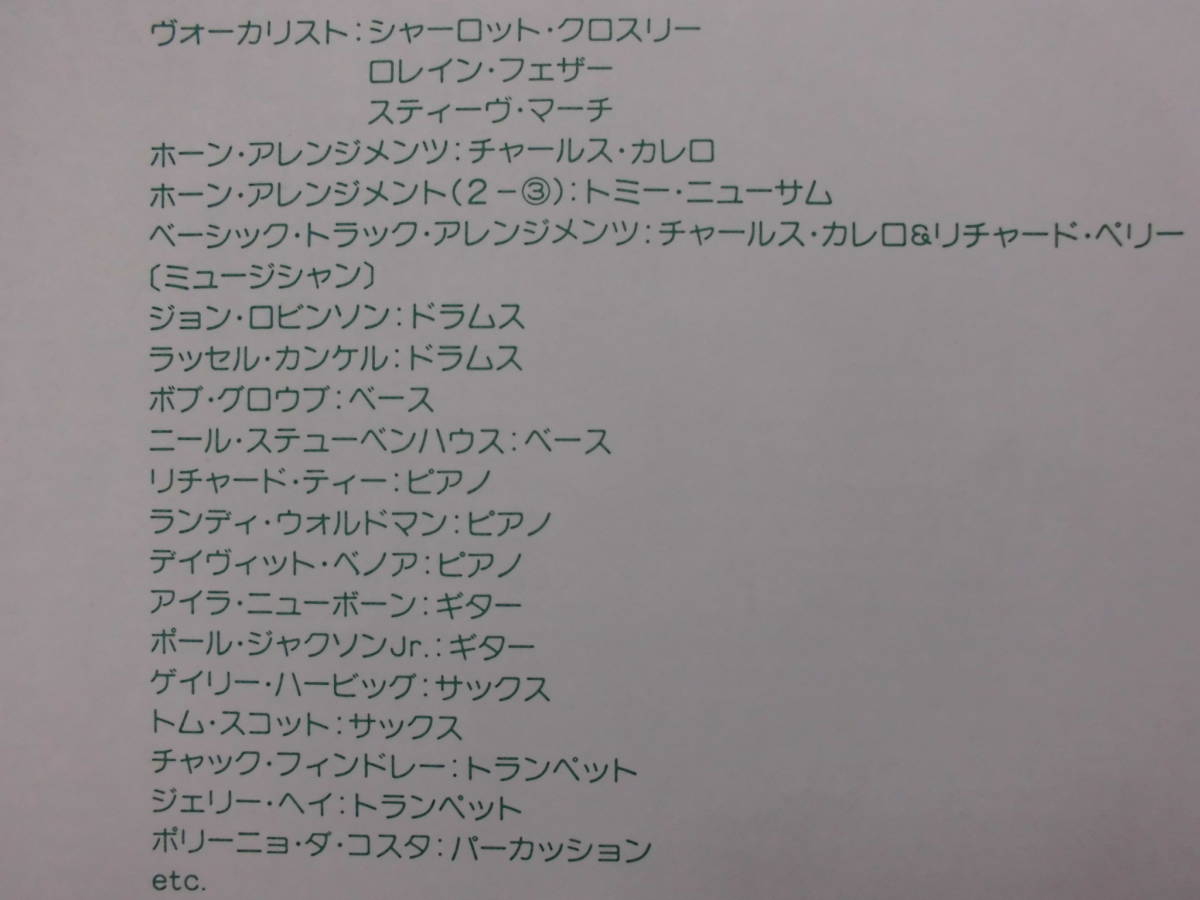 ヴォーカリスト:シャーロット・クロスリー
ロレイン・フェザー
スティーヴ・マーチ
ホーン・アレンジメンツ:チャールス・カレロ
ホーン・アレンジメント(2-③):トミー・ニューサム
ベーシック・トラック・アレンジメンツ:チャールス・カレロ&リチャード・ペリー
〔ミュージシャン〕
ジョン・ロビンソン:ドラムス
ラッセル・カンケル:ドラムス
ボブ・グロウブ:ベース
ニール・ステューベンハウス:ベース
リチャード・ティー:ピアノ
ランディ・ウォルドマン:ピアノ
デイヴィット・ベノア:ピアノ
アイラ・ニューボーン:ギター
ポール・ジャクソンJr.:ギター
ゲイリー・ハービッグ:サックス
トム・スコット:サックス
チャック・フィンドレー:トランペット
ジェリー・ヘイ:トランペット
ポリーニョ・ダ・コスタ:パーカッション
etc.